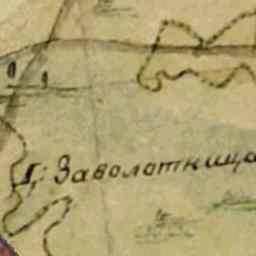 Г: Заболотнища